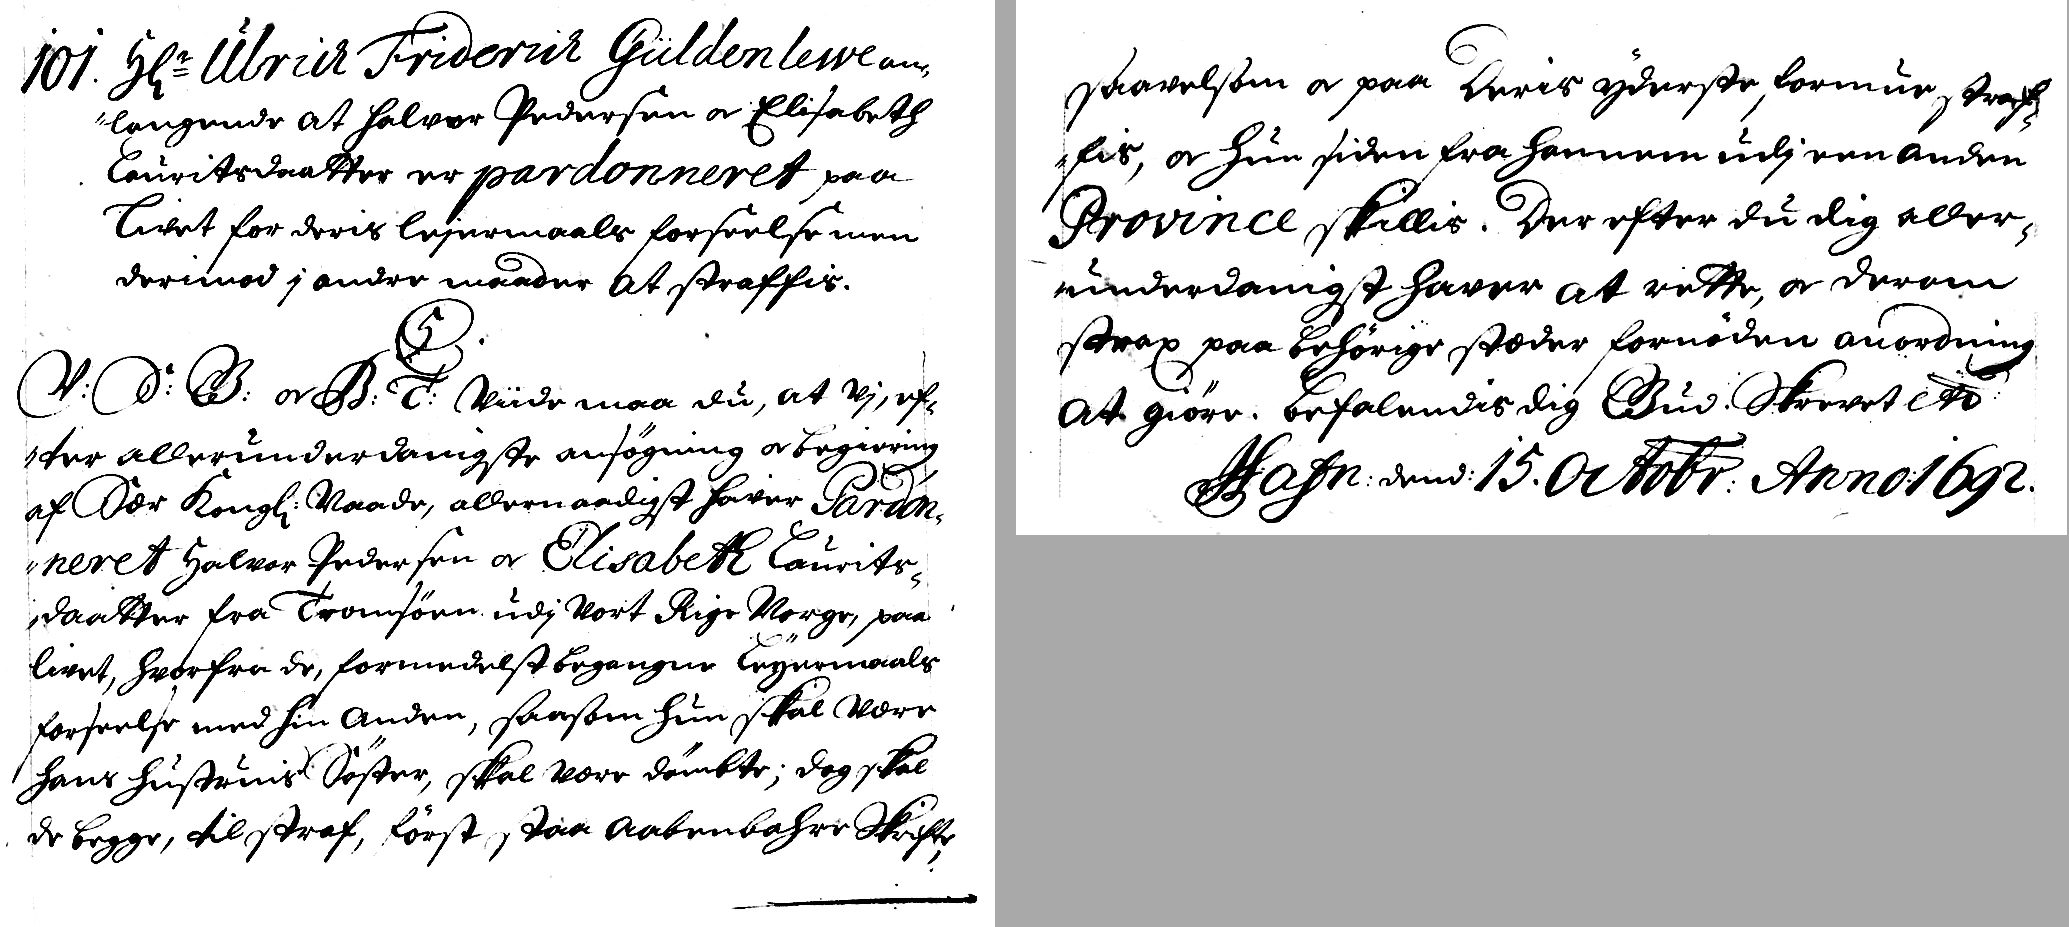 101. Hr. Ulrich Friderich Güldenlewe an-
langende at Halvor Pedersen oc Elisabeth
Lauritsdaatter er pardonneret paa
Livet for deris lejermaals forseelse men
derimod j andre maader at straffis.
C5.
V: D: B: oc B: T: Viide maa du, at Vj, ef-
ter allerunderdanigste ansögning oc begiering
af Sær Kongl: Naade, allernaadigst haver Pardon-
neret Halvor Pedersen oc Elisabeth Laurits-
daatter fra Tromsöen udj Vort Rige Norge, paa
livet, hvorfra de, formedelst begangne Leyermaals
forseelse med hin anden, saasom hun skal være
hans hustruis Söster, skal være dömbte; dog skal
de begge, til straf, först staa aabenbahre Skrifte,
saavelsom oc paa Deris yderste formue straf-
fis, oc hun siden fra hannem udj een anden
Province skillis. Der efter du dig aller-
underdanigst haver at rette, oc derom
strax paa behörige stæder fornöden anordning
at giöre. Befalendis dig Gud. Skrevet etc:
Hafn: dend: 15. Octobr: Anno: 1692.